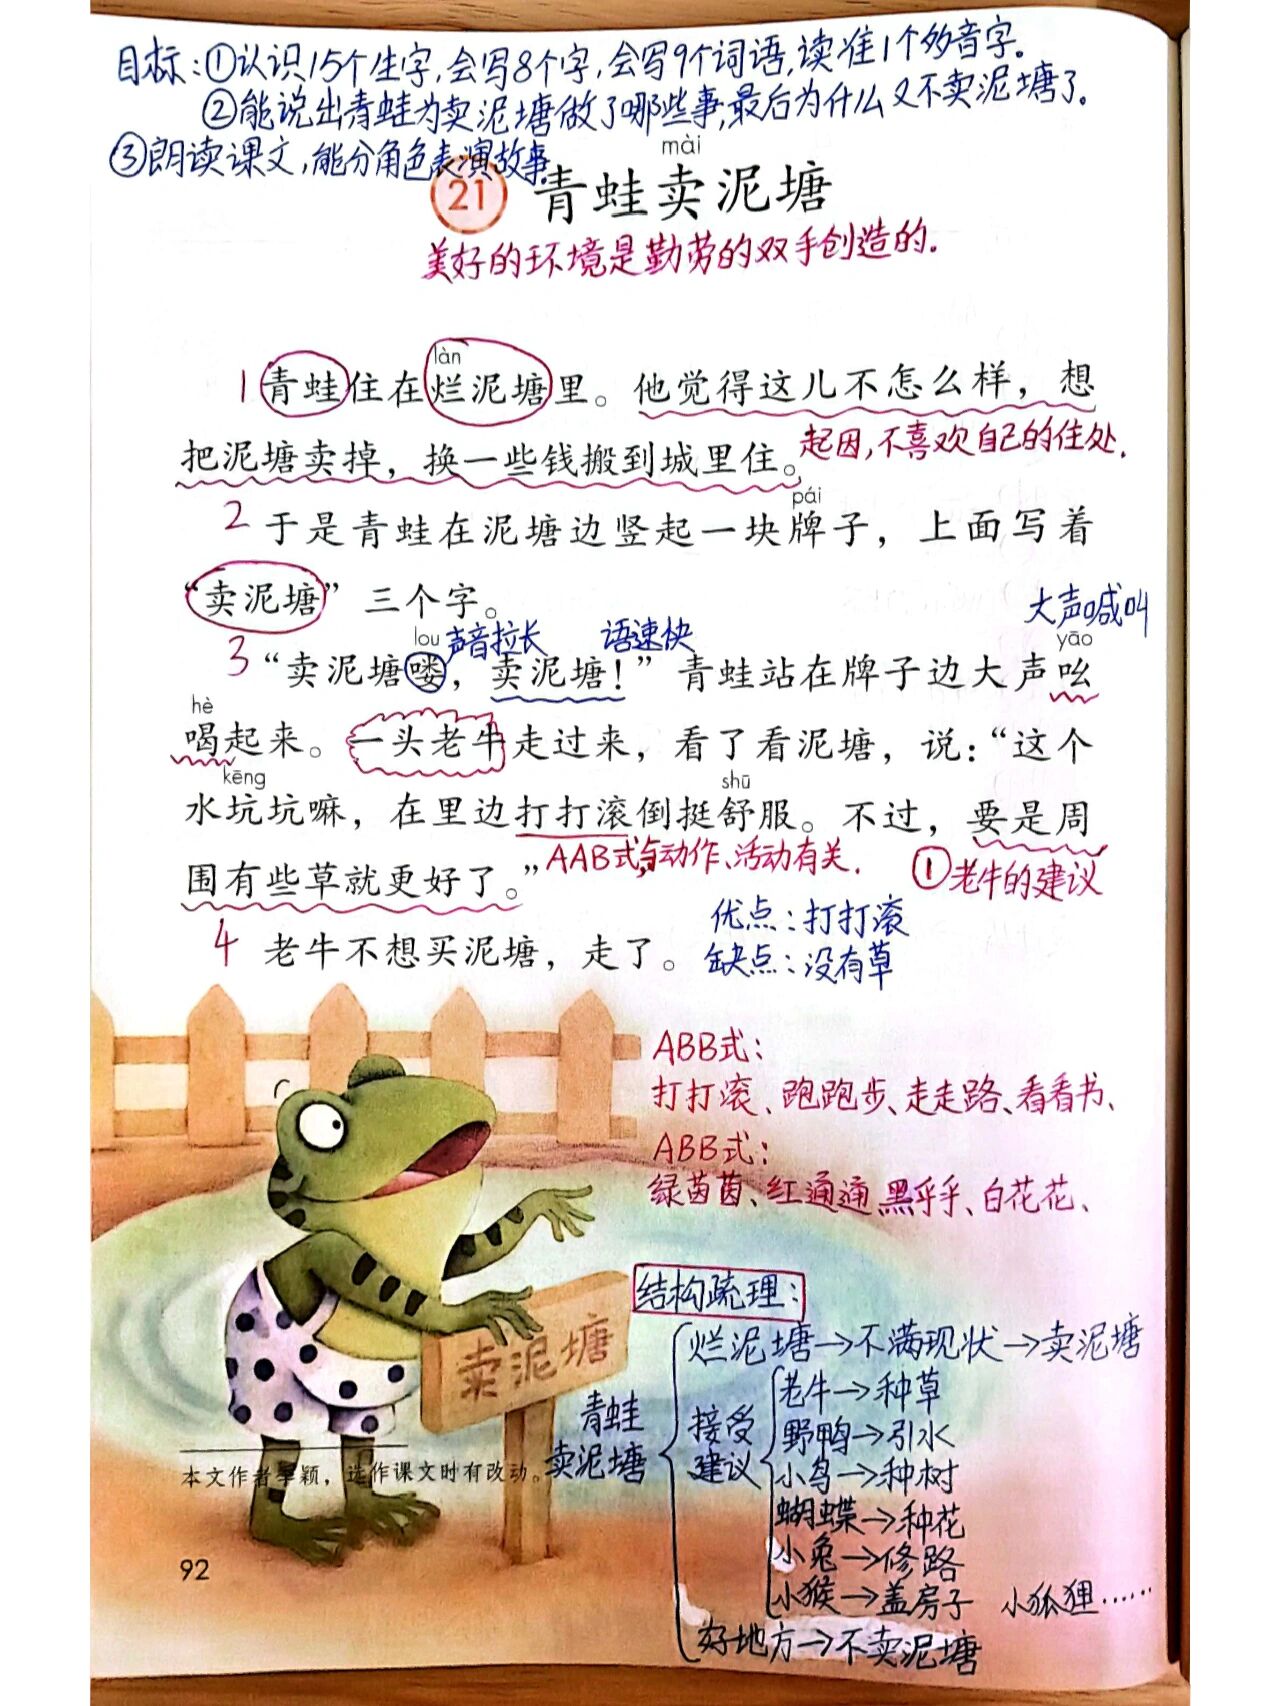 目标:①认识15个生字,会写8个字,会写9个词语,读准1个多音字。
②能说出青蛙为卖泥塘做了哪些事,最后为什么又不卖泥塘了。
③朗读课文,能分角色表演故事
mài
21 青蛙卖泥塘
美好的环境是勤劳的双手创造的.
làn
1 青蛙住在烂泥塘里。他觉得这儿不怎么样，想
把泥塘卖掉，换一些钱搬到城里住。
起因,不喜欢自己的住处.
pái
2 于是青蛙在泥塘边竖起一块牌子，上面写着
“卖泥塘”三个字。
大声喊叫
lou 声音拉长 语速快 yāo
3 “卖泥塘喽，卖泥塘！”青蛙站在牌子边大声吆
hè
喝起来。一头老牛走过来，看了看泥塘，说：“这个
kēng shū
水坑坑嘛，在里边打打滚倒挺舒服。不过，要是周
围有些草就更好了。”
AAB式,与动作、活动有关.
①老牛的建议
4 老牛不想买泥塘，走了。
优点:打打滚
缺点:没有草
ABB式:
打打滚、跑跑步、走走路、看看书、
ABB式:
绿茵茵、红通通、黑乎乎、白花花、
结构疏理:
卖泥塘
青蛙
卖泥塘
烂泥塘→不满现状→卖泥塘
接受
建议
老牛→种草
野鸭→引水
小鸟→种树
蝴蝶→种花
小兔→修路
小猴→盖房子 小狐狸……
好地方→不卖泥塘
本文作者李颖，选作课文时有改动。
92